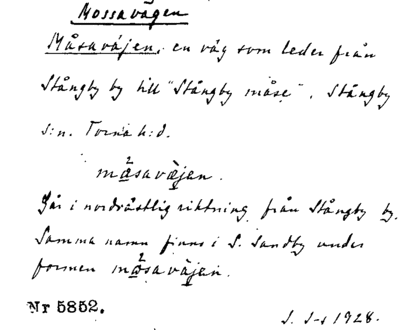 Mossavägen
Måsavájen, en väg som leder från
Stångby by till "Stångby måse", Stångby
s:n. Torna h:d.
måsavàjen.
Går i nordvästlig riktning från Stångby by.
Samma namn finns i S. Sandby under
formen måsavàjen.
Nr 5852.
S. S-s 1928.